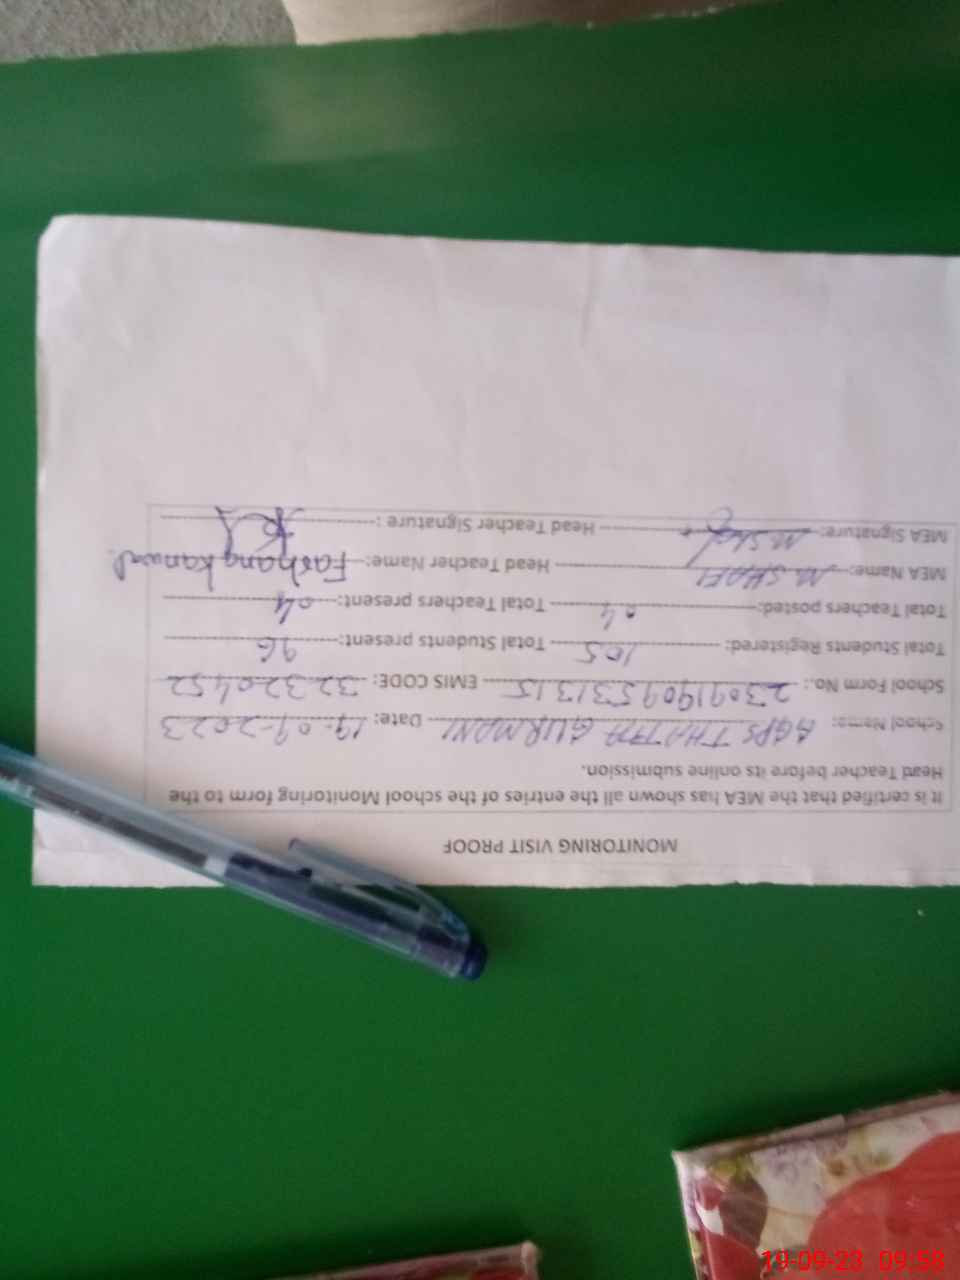 MONITORING VISIT PROOF
It is certified that the MEA has shown all the entries of the school Monitoring form to the
Head Teacher before its online submission.
School Name: GGPS THATTA GURMANI Date: 19-09-2023
School Form No.: 23091909531315 EMIS CODE: 32320452
Total Students Registered: 105 Total Students present: 96
Total Teachers posted: 04 Total Teachers present: 04
MEA Name: M. SHAFI Head Teacher Name: Farhang Kanwal.
MEA Signature: M. Shafi Head Teacher Signature :
19-09-23 09:58